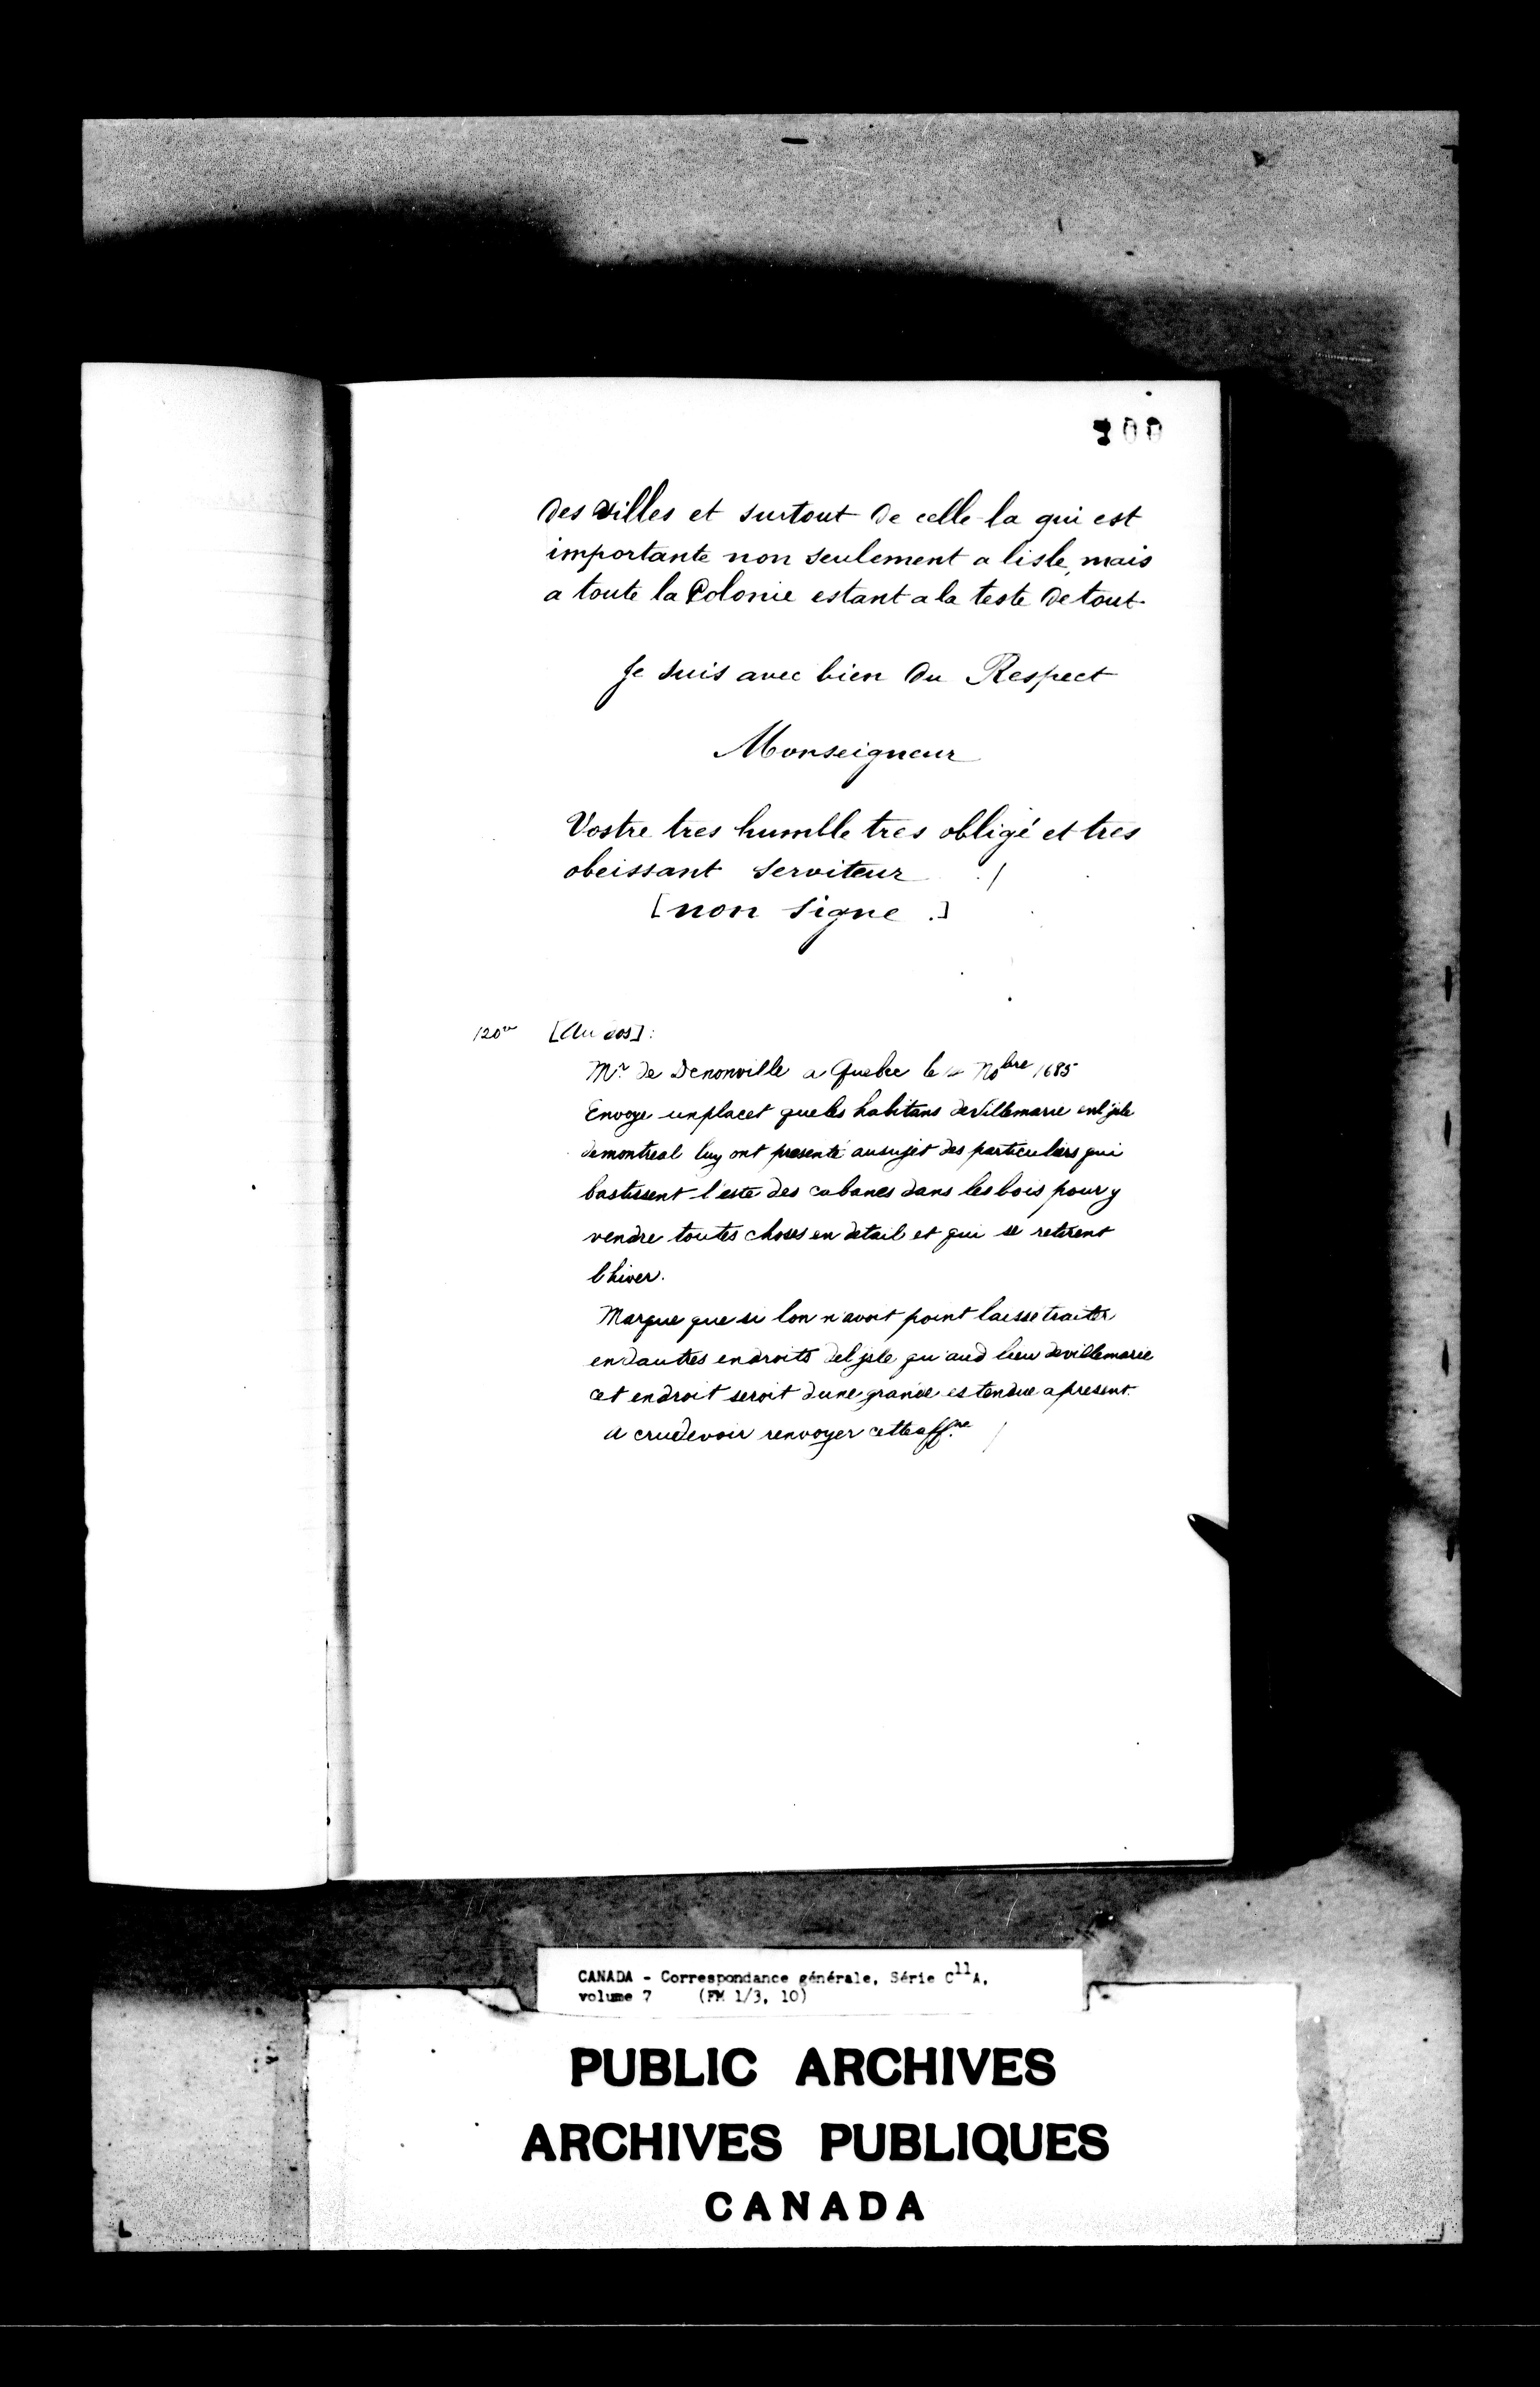 200
des villes et surtout de celle-la qui est
importante non seulement a lisle, mais
a toute la Colonie estant a la teste de tout
Je suis avec bien du Respect
Monseigneur
Vostre tres humble tres obligé et tres
obeissant serviteur ./
[non signe.]
120vo [Au dos]:
Mr. de Denonville a Quebec le Nobre 1685
Envoye un placet que les habitans de Villemarie en l'jsle
de montreal luy ont presenté au sujet des particuliers qui
bastissent l'esté des cabanes dans les bois pour y
vendre toutes choses en detail et qui se retirent
l'hiver.
Marque que si lon n'avoit point laissé traiter
en dautres endroits del jsle qu'aud lieu de villemarie
cet endroit seroit dune grande estendue a present.
a cru devoir renvoyer cette affre /
CANADA - Correspondance générale, Série C11A,
volume 7 (FM 1/3, 10)
PUBLIC ARCHIVES
ARCHIVES PUBLIQUES
CANADA